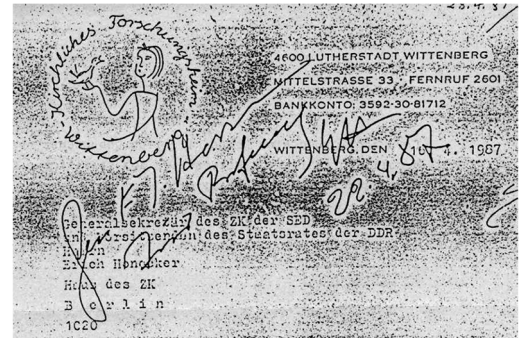 23.4.87
Kirchliches Forschungsheim
Wittenberg
4600 LUTHERSTADT WITTENBERG
MITTELSTRASSE 33, FERNRUF 2601
BANKKONTO: 3592-30-81712
WITTENBERG, DEN 1987
22.4.87
Generalsekretär des ZK der SED
und Vorsitzenden des Staatsrates der DDR
Herrn
Erich Honecker
Haus des ZK
B e r l i n
1020